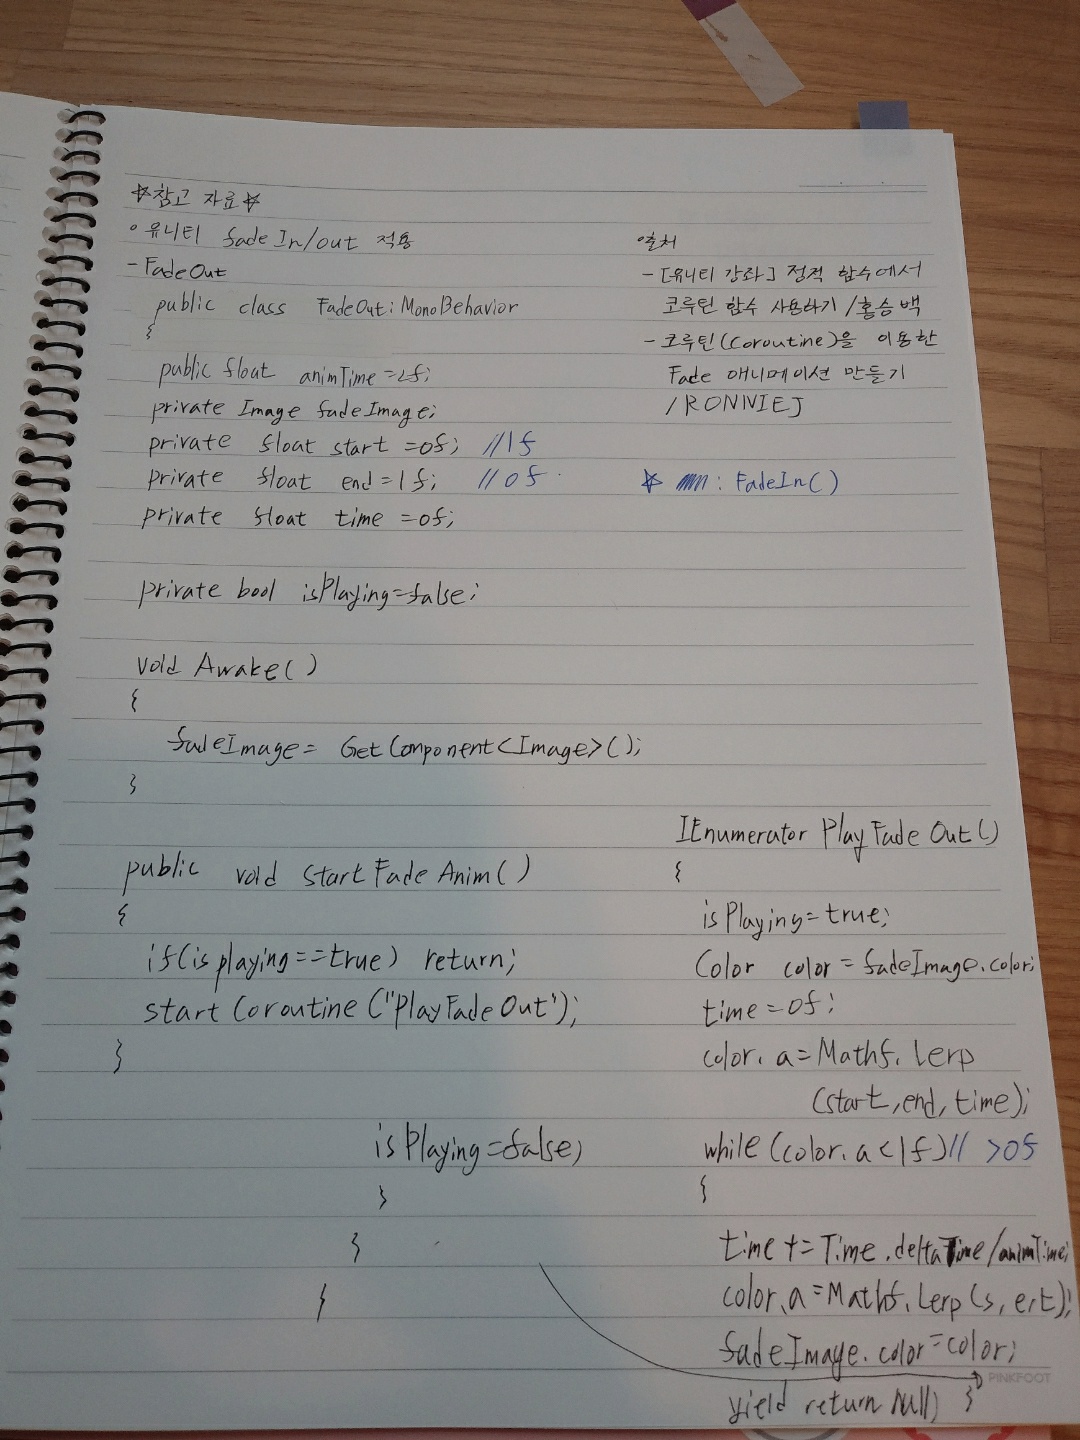 ☆참고 자료☆
∘유니티 fade In/out 적용
- FadeOut
public class FadeOut: MonoBehavior
{
public float animTime=2f;
private Image fadeImage;
private float start =0f; //1f
private float end=1f; //0f
private float time =0f;
private bool isPlaying=false;
void Awake()
{
fadeImage= GetComponent<Image>();
}
public void startFadeAnim()
{
if(isplaying==true) return;
startCoroutine("PlayFadeOut");
}
출처
- [유니티 강좌] 정적 함수에서
코루틴 함수 사용하기 /홍승백
- 코루틴(Coroutine)을 이용한
Fade 애니메이션 만들기
/RONNIEJ
☆ : FadeIn()
IEnumerator PlayFadeOut()
{
isPlaying=true;
Color color=fadeImage.color;
time=0f;
color.a=Mathf.Lerp
(start,end,time);
while(color.a<1f)// >0f
{
time+=Time.deltaTime/animTime;
color.a=Mathf.Lerp(s,e,t);
fadeImage.color=color;
yield return Null; }
isPlaying=false;
}
}
}
PINKFOOT